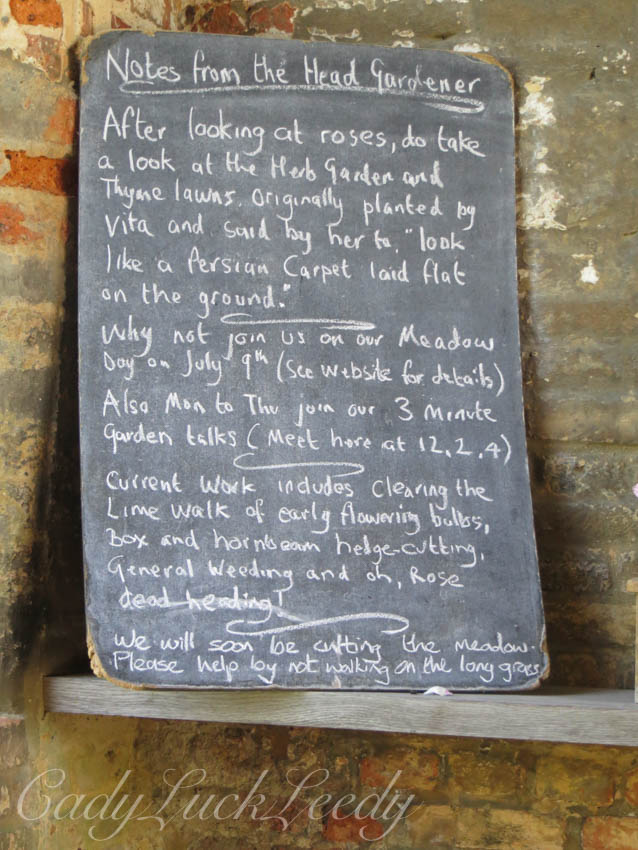 Notes from the Head Gardener
After looking at roses, do take
a look at the Herb Garden and
Thyme lawns. Originally planted by
Vita and said by her to, "look
like a Persian Carpet laid flat
on the ground."
Why not join us on our Meadow
Day on July 9th (See website for details)
Also Mon to Thu join our 3 Minute
garden talks (Meet here at 12, 2, 4)
Current work includes clearing the
Lime Walk of early flowering bulbs,
Box and hornbeam hedge-cutting,
General Weeding and oh, Rose
dead heading!
We will soon be cutting the meadow.
Please help by not walking on the long grass
CadyLuckLeedy